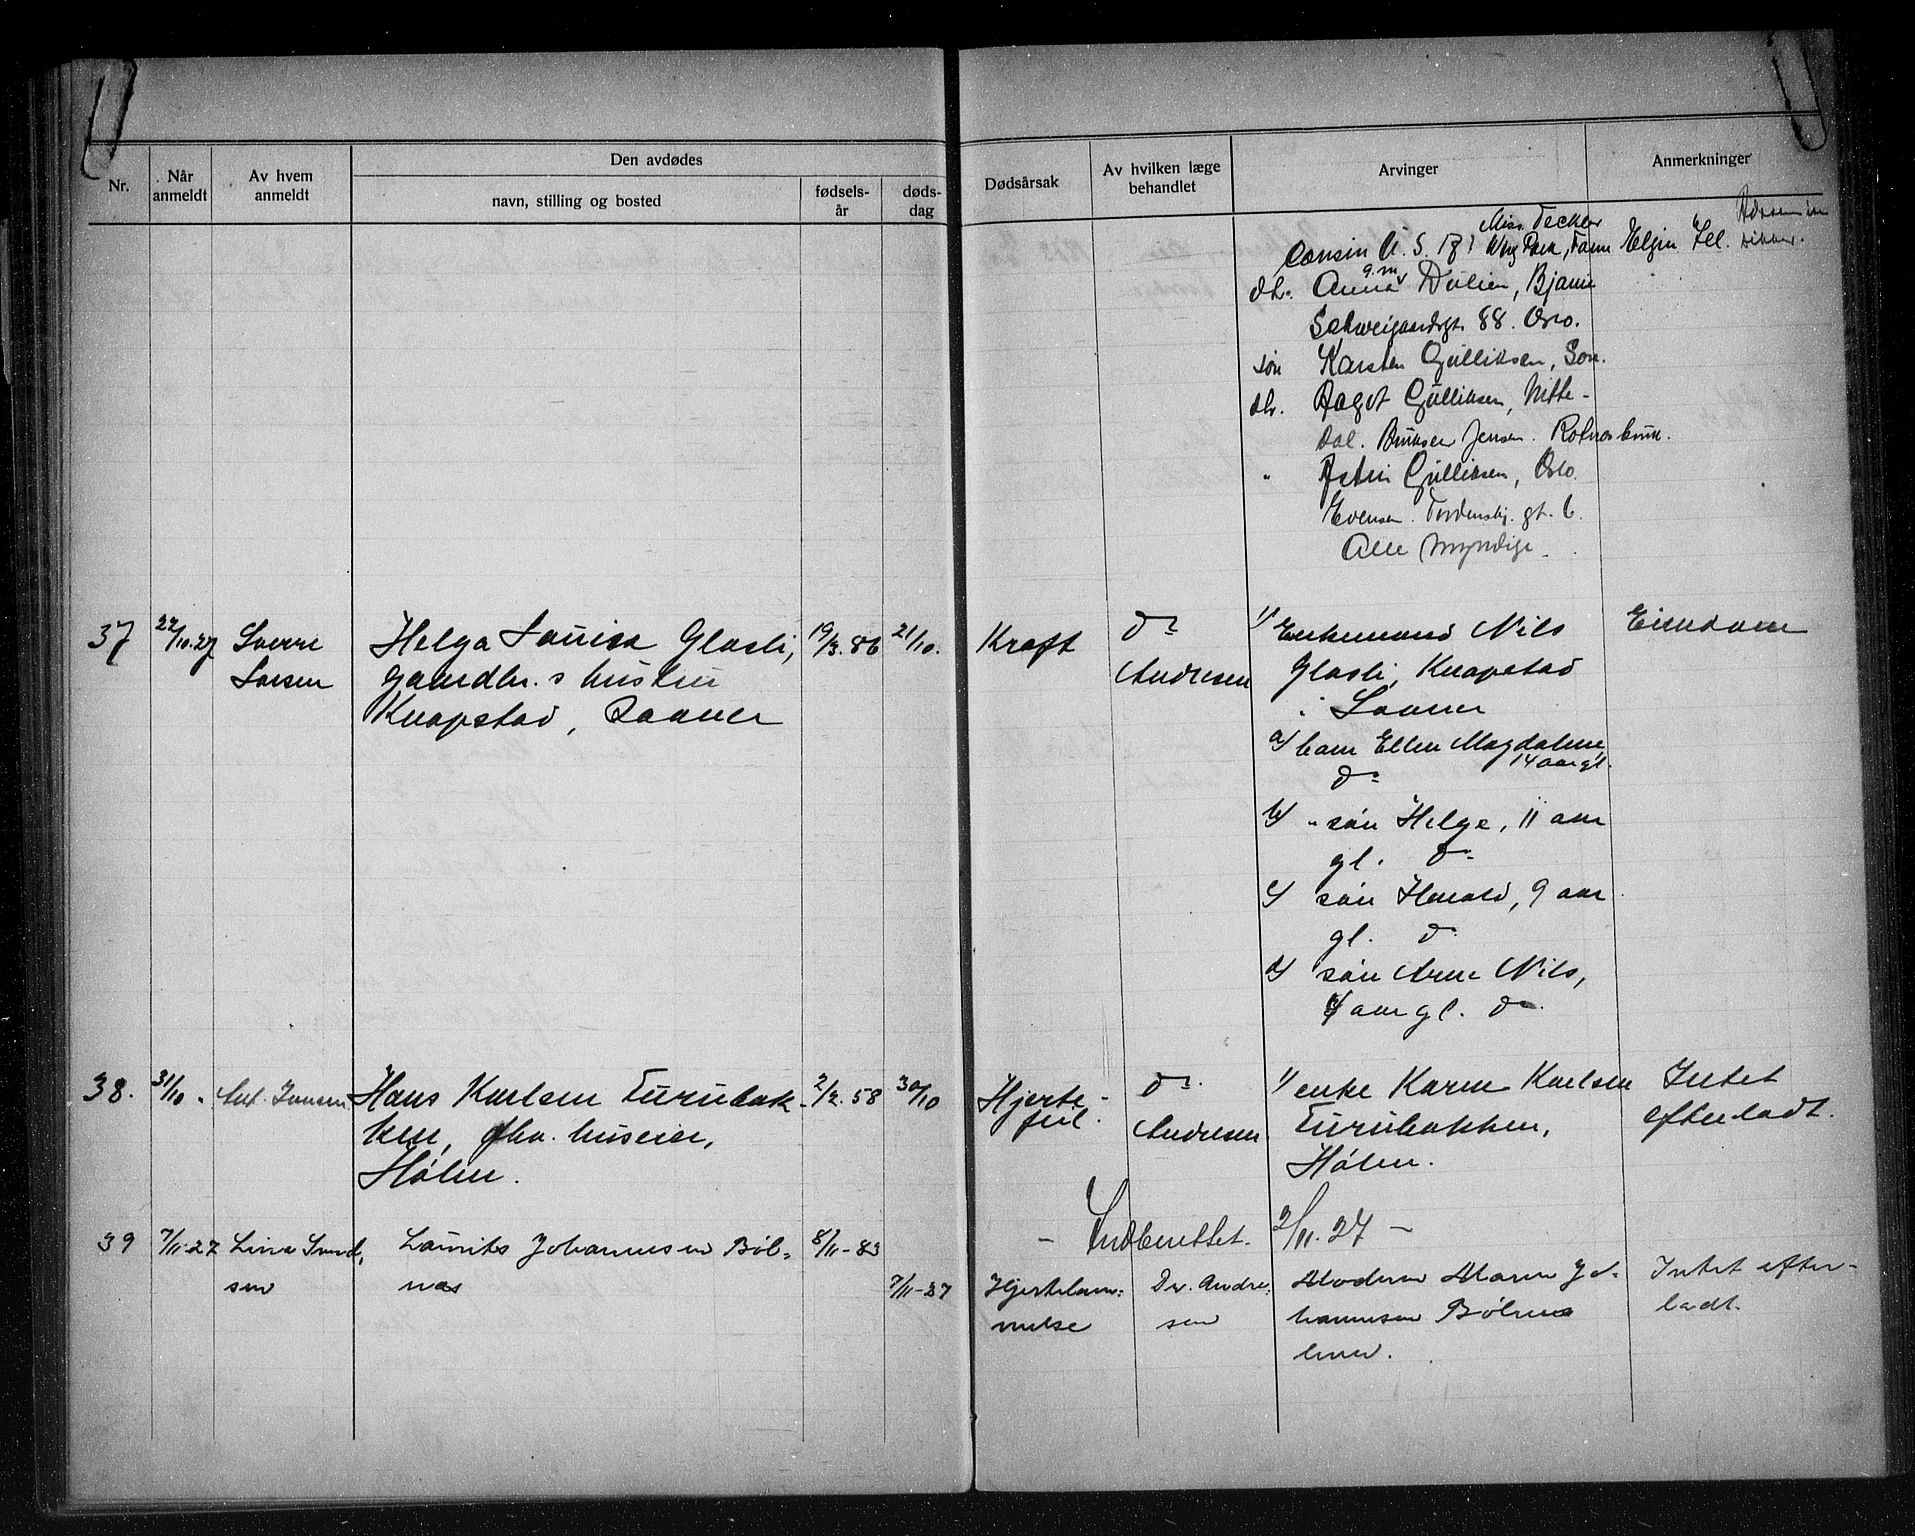 Nr.
Når anmeldt
Av hvem anmeldt
Den avdødes
navn, stilling og bosted
fødsels-år
døds-dag
Dødsårsak
Av hvilken læge behandlet
Arvinger
Anmerkninger
Miss
Farm Elgin Ill.
dtr. Anna g.m. Bjarne
Schweigaardsgt. 88. Oslo.
søn Karsten Gulliksen, Son.
dtr. Dagot Gulliksen, Nitte-
dal. Jensen. Rotnes bruk.
" Astri Gulliksen, Oslo.
Evensen. Tordenskj. gt. 6.
Alle myndige.
37 22/10.27 Sverre Larsen
Helga Louise Glasli,
gaardbr.s hustru
Knapstad, Saaner
19/3.86 21/10. Kræft do Andresen
1/ Enkemand Nils
Glasli, Knapstad
i Saaner
a/ barn Ellen Magdalene,
14 aar gl.
do
b/ " søn Helge, 11 aar
gl. do
c/ søn Harald, 9 aar
gl. do
d/ søn Arne Nils,
aar gl. do.
Eiendom
38. 31/10. Ant. Iversen
Hans Karlsen Furubak-
ken, fhv. huseier,
Hølen.
2/2.58 30/10 Hjerte-
feil.
do Andresen
1/ enke Karen Karlsen
Furubakken,
Hølen.
Intet
efterladt.
- Indberettet. 2/11.27 -
39 7/11-27 Lina
sen
Laurits Johannesen Bøl-
nes
8/11-83 7/11-27 Hjertelam-
melse
Dr. Andre-
sen
Moderen Maren Jo-
hannesen Bølnes
lever.
Intet efter-
ladt.